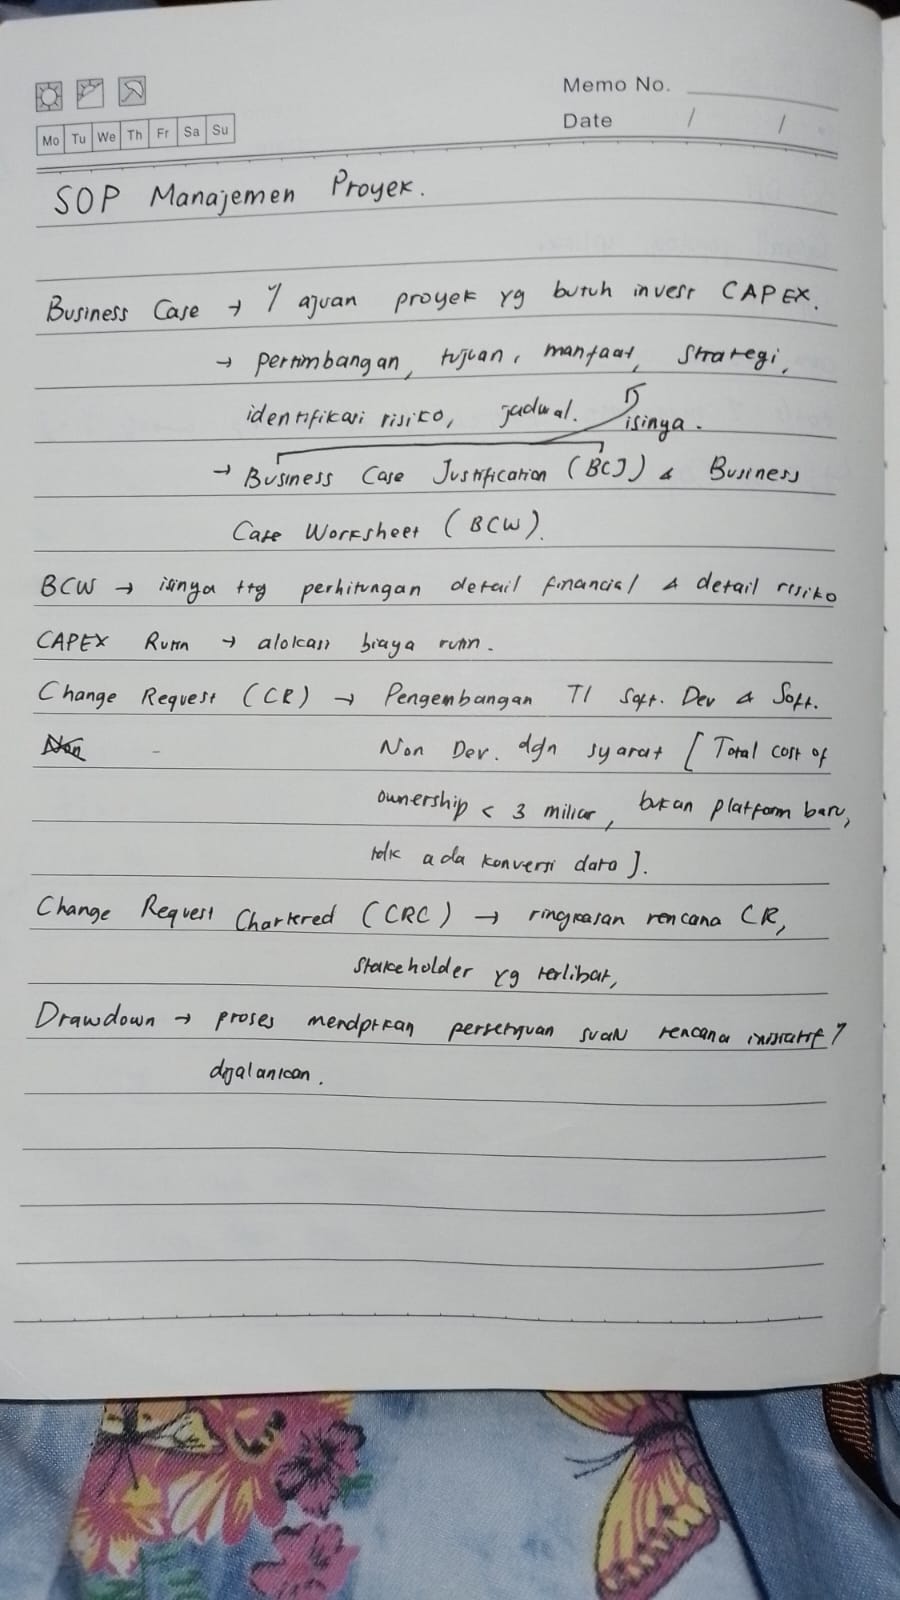 Memo No.
Mo Tu We Th Fr Sa Su
Date / /
SOP Manajemen Proyek.
Business Case → y/ ajuan proyek yg butuh invest CAPEX.
→ pertimbangan, tujuan, manfaat, strategi,
identifikasi risiko, jadwal. isinya.
→ Business Case Justification (BCJ) & Business
Case Worksheet (BCW).
BCW → isinya ttg perhitungan detail financial & detail risiko
CAPEX Rutin → alokasi biaya rutin.
Change Request (CR) → Pengembangan TI Soft. Dev & Soft.
Non - Non Dev. dgn syarat [Total cost of
ownership < 3 miliar, bukan platform baru,
tdk ada konversi data].
Change Request Chartered (CRC) → ringkasan rencana CR,
Stakeholder yg terlibat,
Drawdown → proses mendptkan persetujuan suatu rencana inisiatif y/
dijalankan.